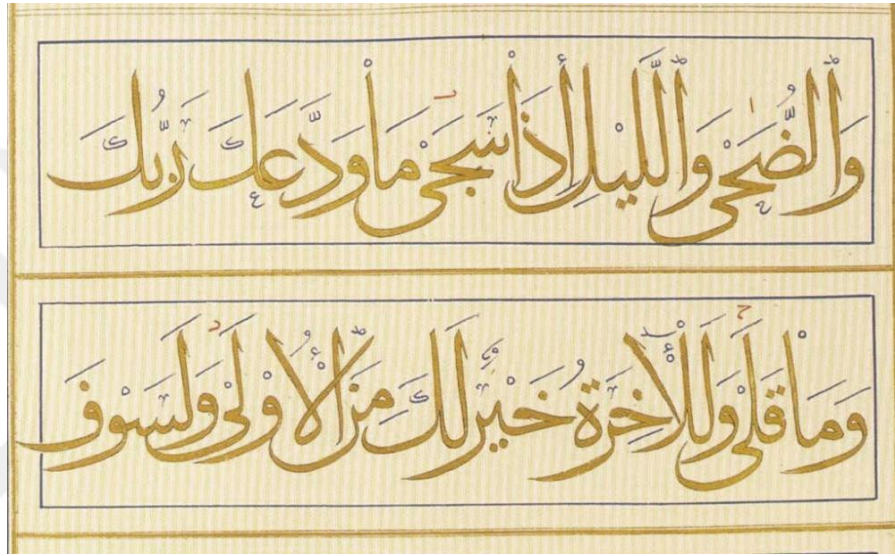 وَٱلضُّحَىٰ وَٱلَّيْلِ إِذَا سَجَىٰ مَا وَدَّعَكَ رَبُّكَ
وَمَا قَلَىٰ وَلَلْآخِرَةُ خَيْرٌ لَكَ مِنَ ٱلْأُولَىٰ وَلَسَوْفَ